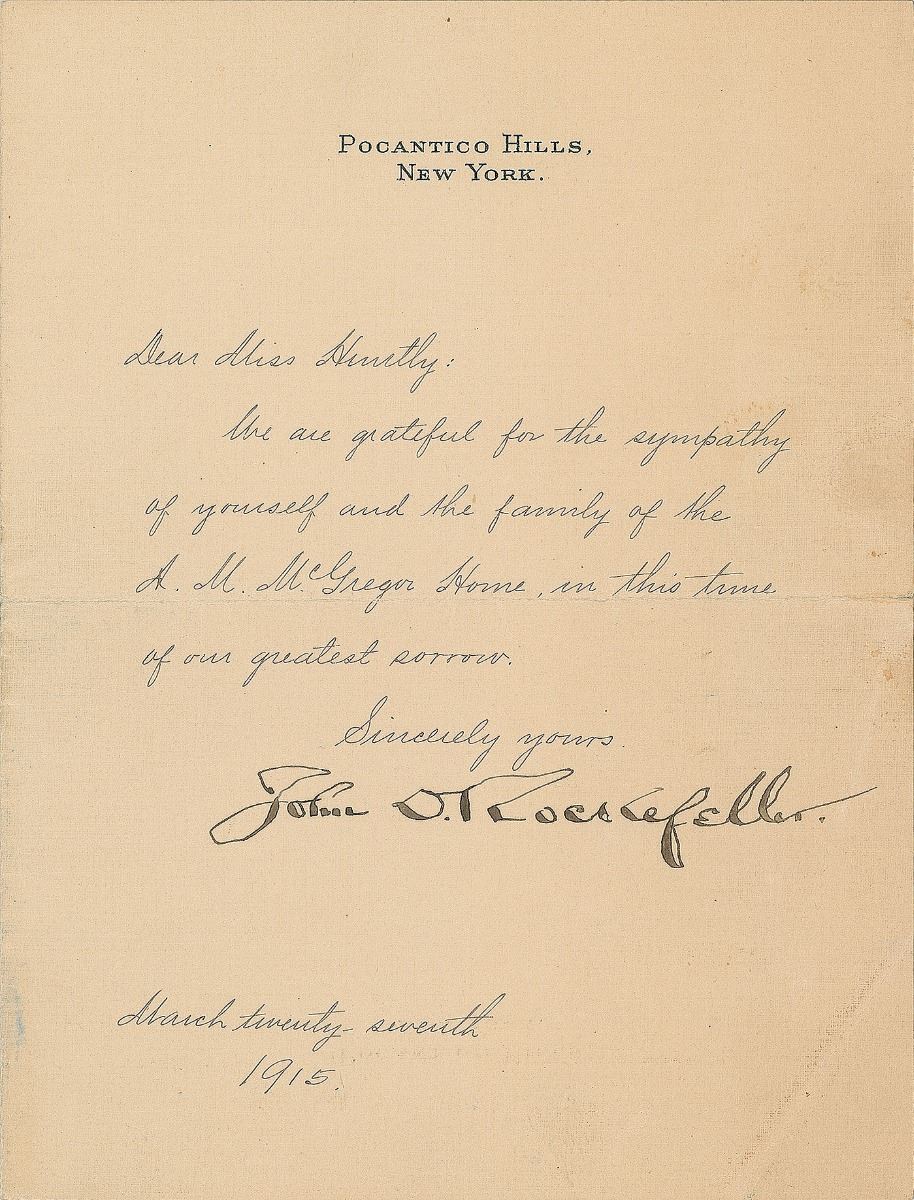 Pocantico Hills,
New York.
Dear Miss Huntly:
We are grateful for the sympathy
of yourself and the family of the
A. M. McGregor Home, in this time
of our greatest sorrow.
Sincerely yours.
John D. Rockefeller.
March twenty-seventh
1915.